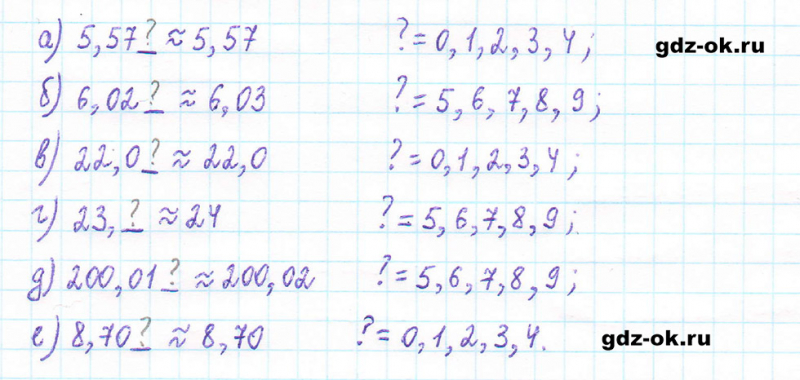 а) 5,57? ≈ 5,57 ? = 0, 1, 2, 3, 4; gdz-ok.ru
б) 6,02? ≈ 6,03 ? = 5, 6, 7, 8, 9;
в) 22,0? ≈ 22,0 ? = 0, 1, 2, 3, 4;
г) 23,? ≈ 24 ? = 5, 6, 7, 8, 9;
д) 200,01? ≈ 200,02 ? = 5, 6, 7, 8, 9;
е) 8,70? ≈ 8,70 ? = 0, 1, 2, 3, 4. gdz-ok.ru